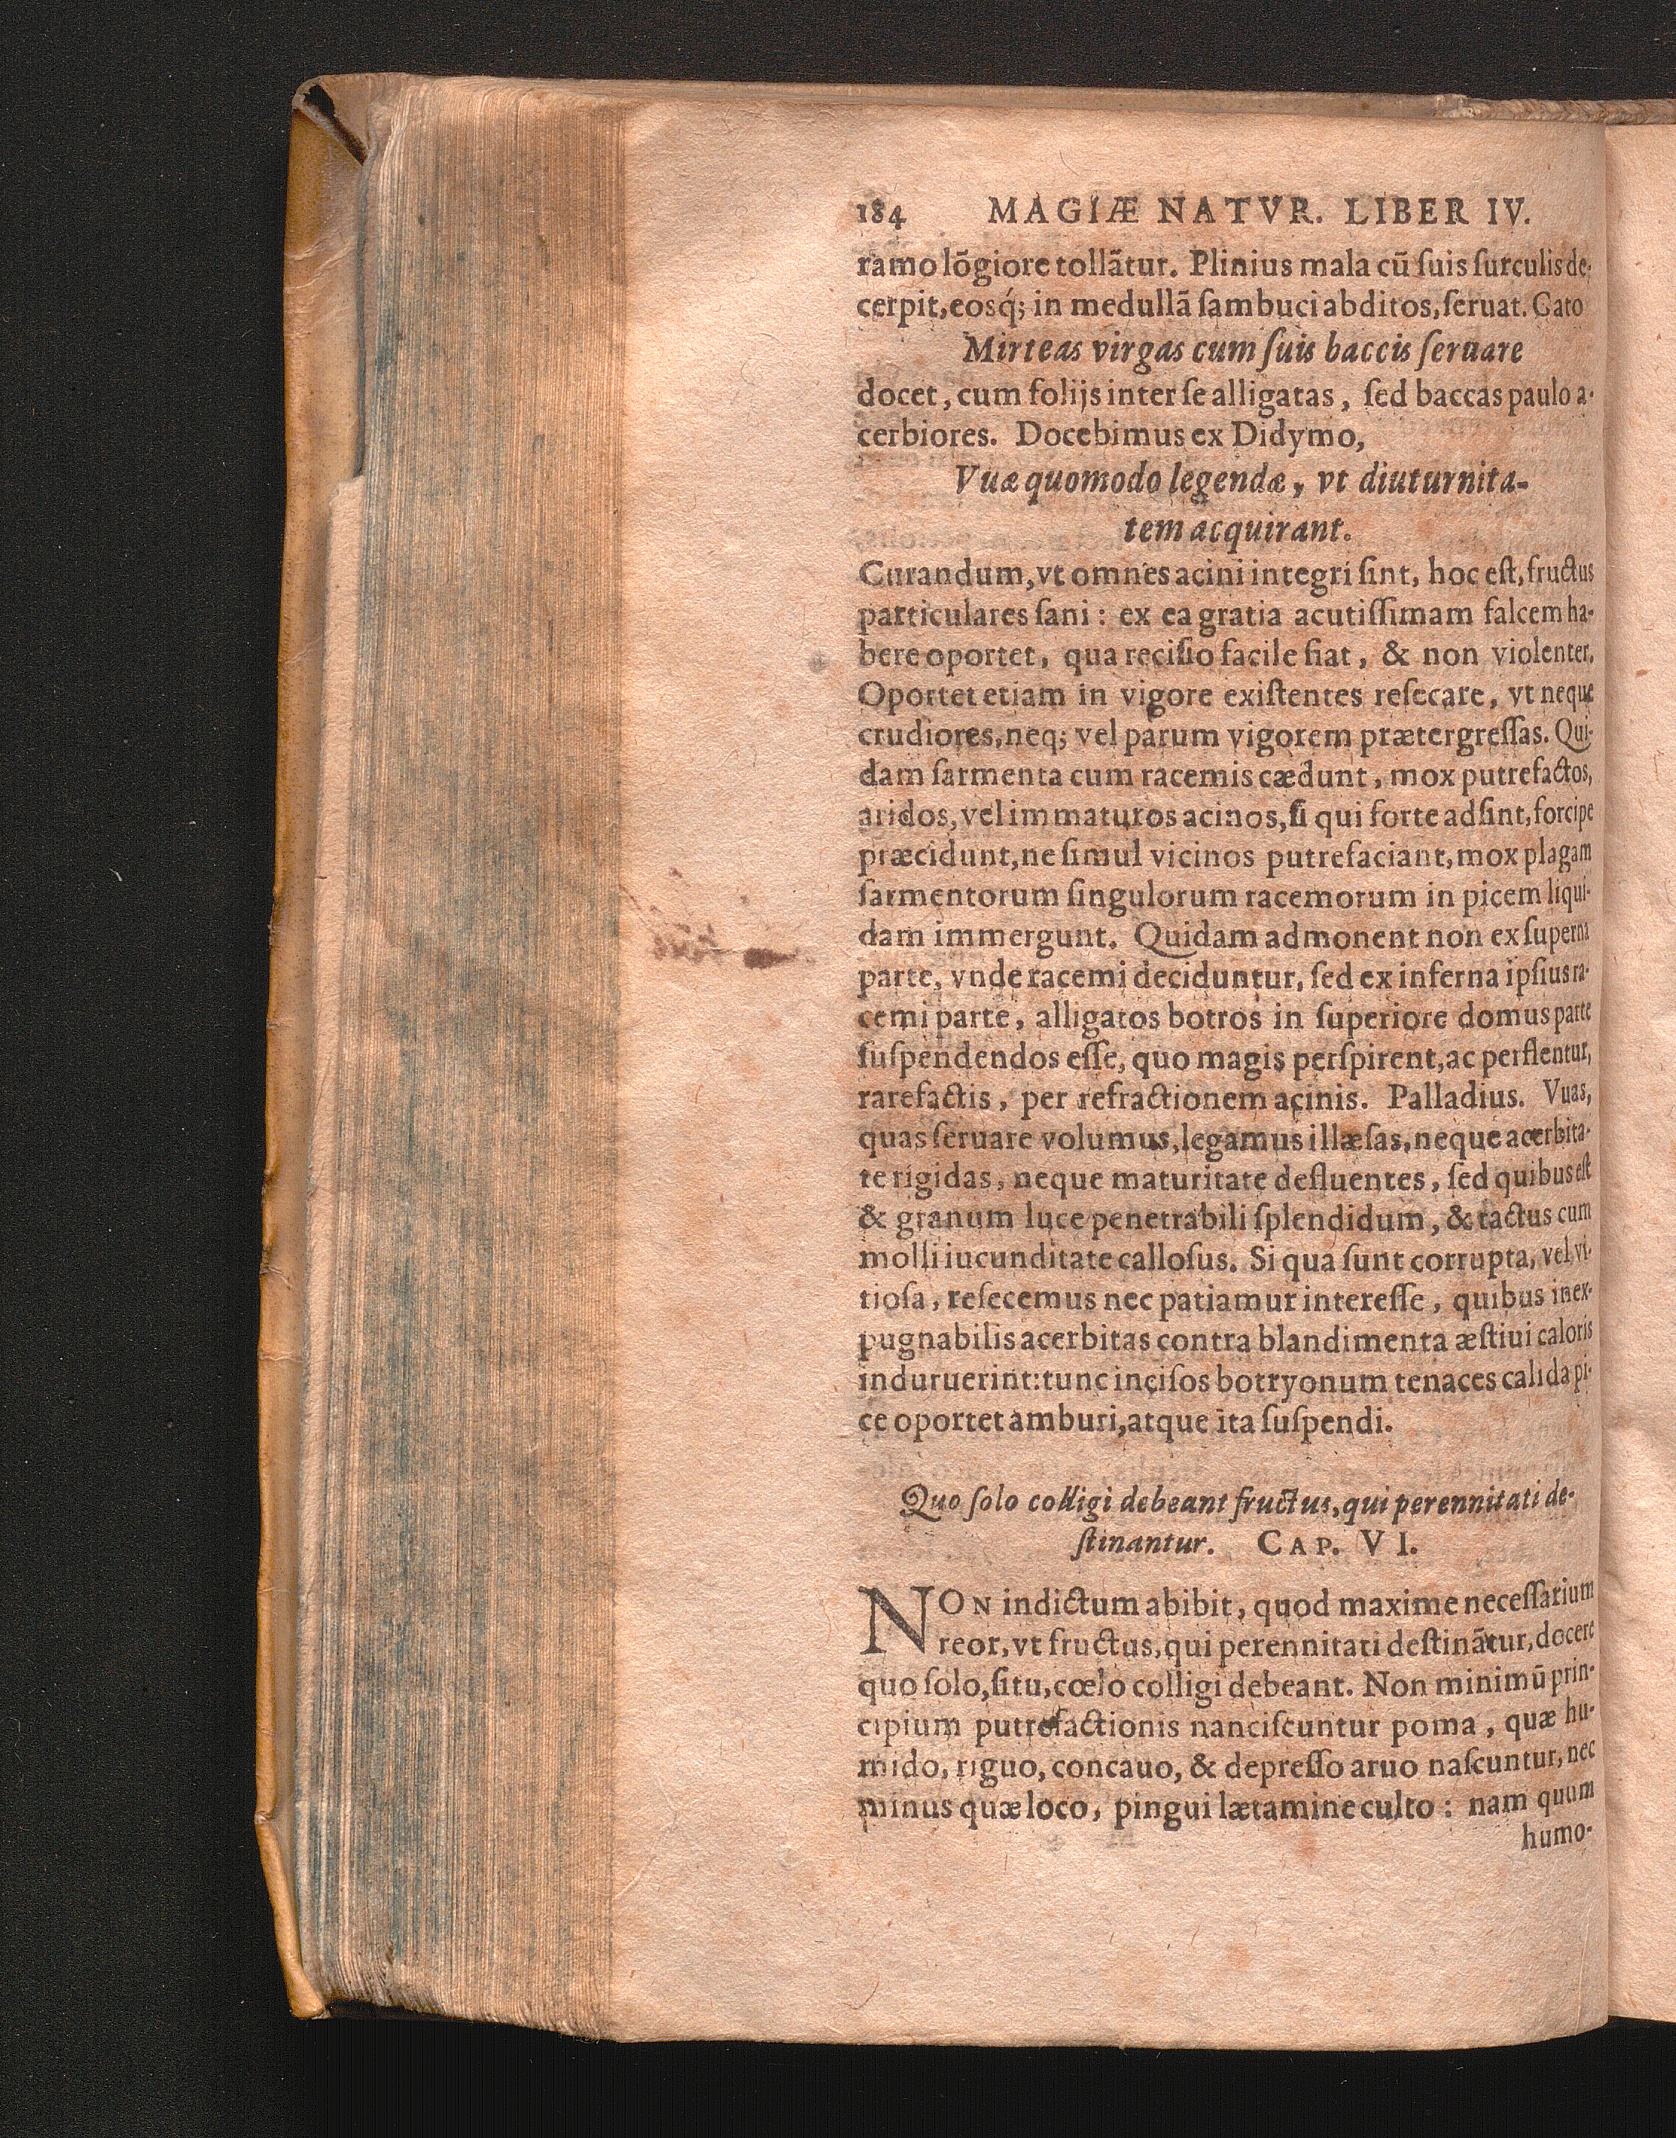 184 MAGIÆ NATVR. LIBER IV.
ramo lõgiore tollãtur. Plinius mala cũ ſuis ſurculis de-
cerpit, eosq́; in medullã ſambuci abditos, ſeruat. Cato
Mirteas virgas cum ſuis baccis ſeruare
docet, cum folijs inter ſe alligatas, ſed baccas paulo a-
cerbiores. Docebimus ex Didymo,
Vuæ quomodo legendæ, vt diuturnita-
tem acquirant.
Curandum, vt omnes acini integri ſint, hoc eſt, fructus
particulares ſani: ex ea gratia acutiſſimam falcem ha-
bere oportet, qua reciſio facile fiat, & non violenter.
Oportet etiam in vigore exiſtentes reſecare, vt neque
crudiores, neq; vel parum vigorem prætergreſſas. Qui-
dam ſarmenta cum racemis cædunt, mox putrefactos,
aridos, vel immaturos acinos, ſi qui forte adſint, forcipe
præcidunt, ne ſimul vicinos putrefaciant, mox plagam
ſarmentorum ſingulorum racemorum in picem liqui-
dam immergunt. Quidam admonent non ex ſuperna
parte, vnde racemi deciduntur, ſed ex inferna ipſius ra-
cemi parte, alligatos botros in ſuperiore domus parte
ſuſpendendos eſſe, quo magis perſpirent, ac perflentur,
rarefactis, per refractionem acinis. Palladius. Vuas,
quas ſeruare volumus, legamus illæſas, neque acerbita-
te rigidas, neque maturitate defluentes, ſed quibus eſt
& granum luce penetrabili ſplendidum, & tactus cum
molli iucunditate calloſus. Si qua ſunt corrupta, vel vi-
tioſa, reſecemus nec patiamur intereſſe, quibus inex-
pugnabilis acerbitas contra blandimenta æſtiui caloris
induruerint: tunc inciſos botryonum tenaces calida pi-
ce oportet amburi, atque ita ſuſpendi.
Quo ſolo colligi debeant fructus, qui perennitati de-
ſtinantur. CAP. VI.
NON indictum abibit, quod maxime neceſſarium
reor, vt fructus, qui perennitati deſtinãtur, docere
quo ſolo, ſitu, cœlo colligi debeant. Non minimũ prin-
cipium putrefactionis nanciſcuntur poma, quæ hu-
mido, riguo, concauo, & depreſſo aruo naſcuntur, nec
minus quæ loco, pingui lætamine culto: nam quum
humo-